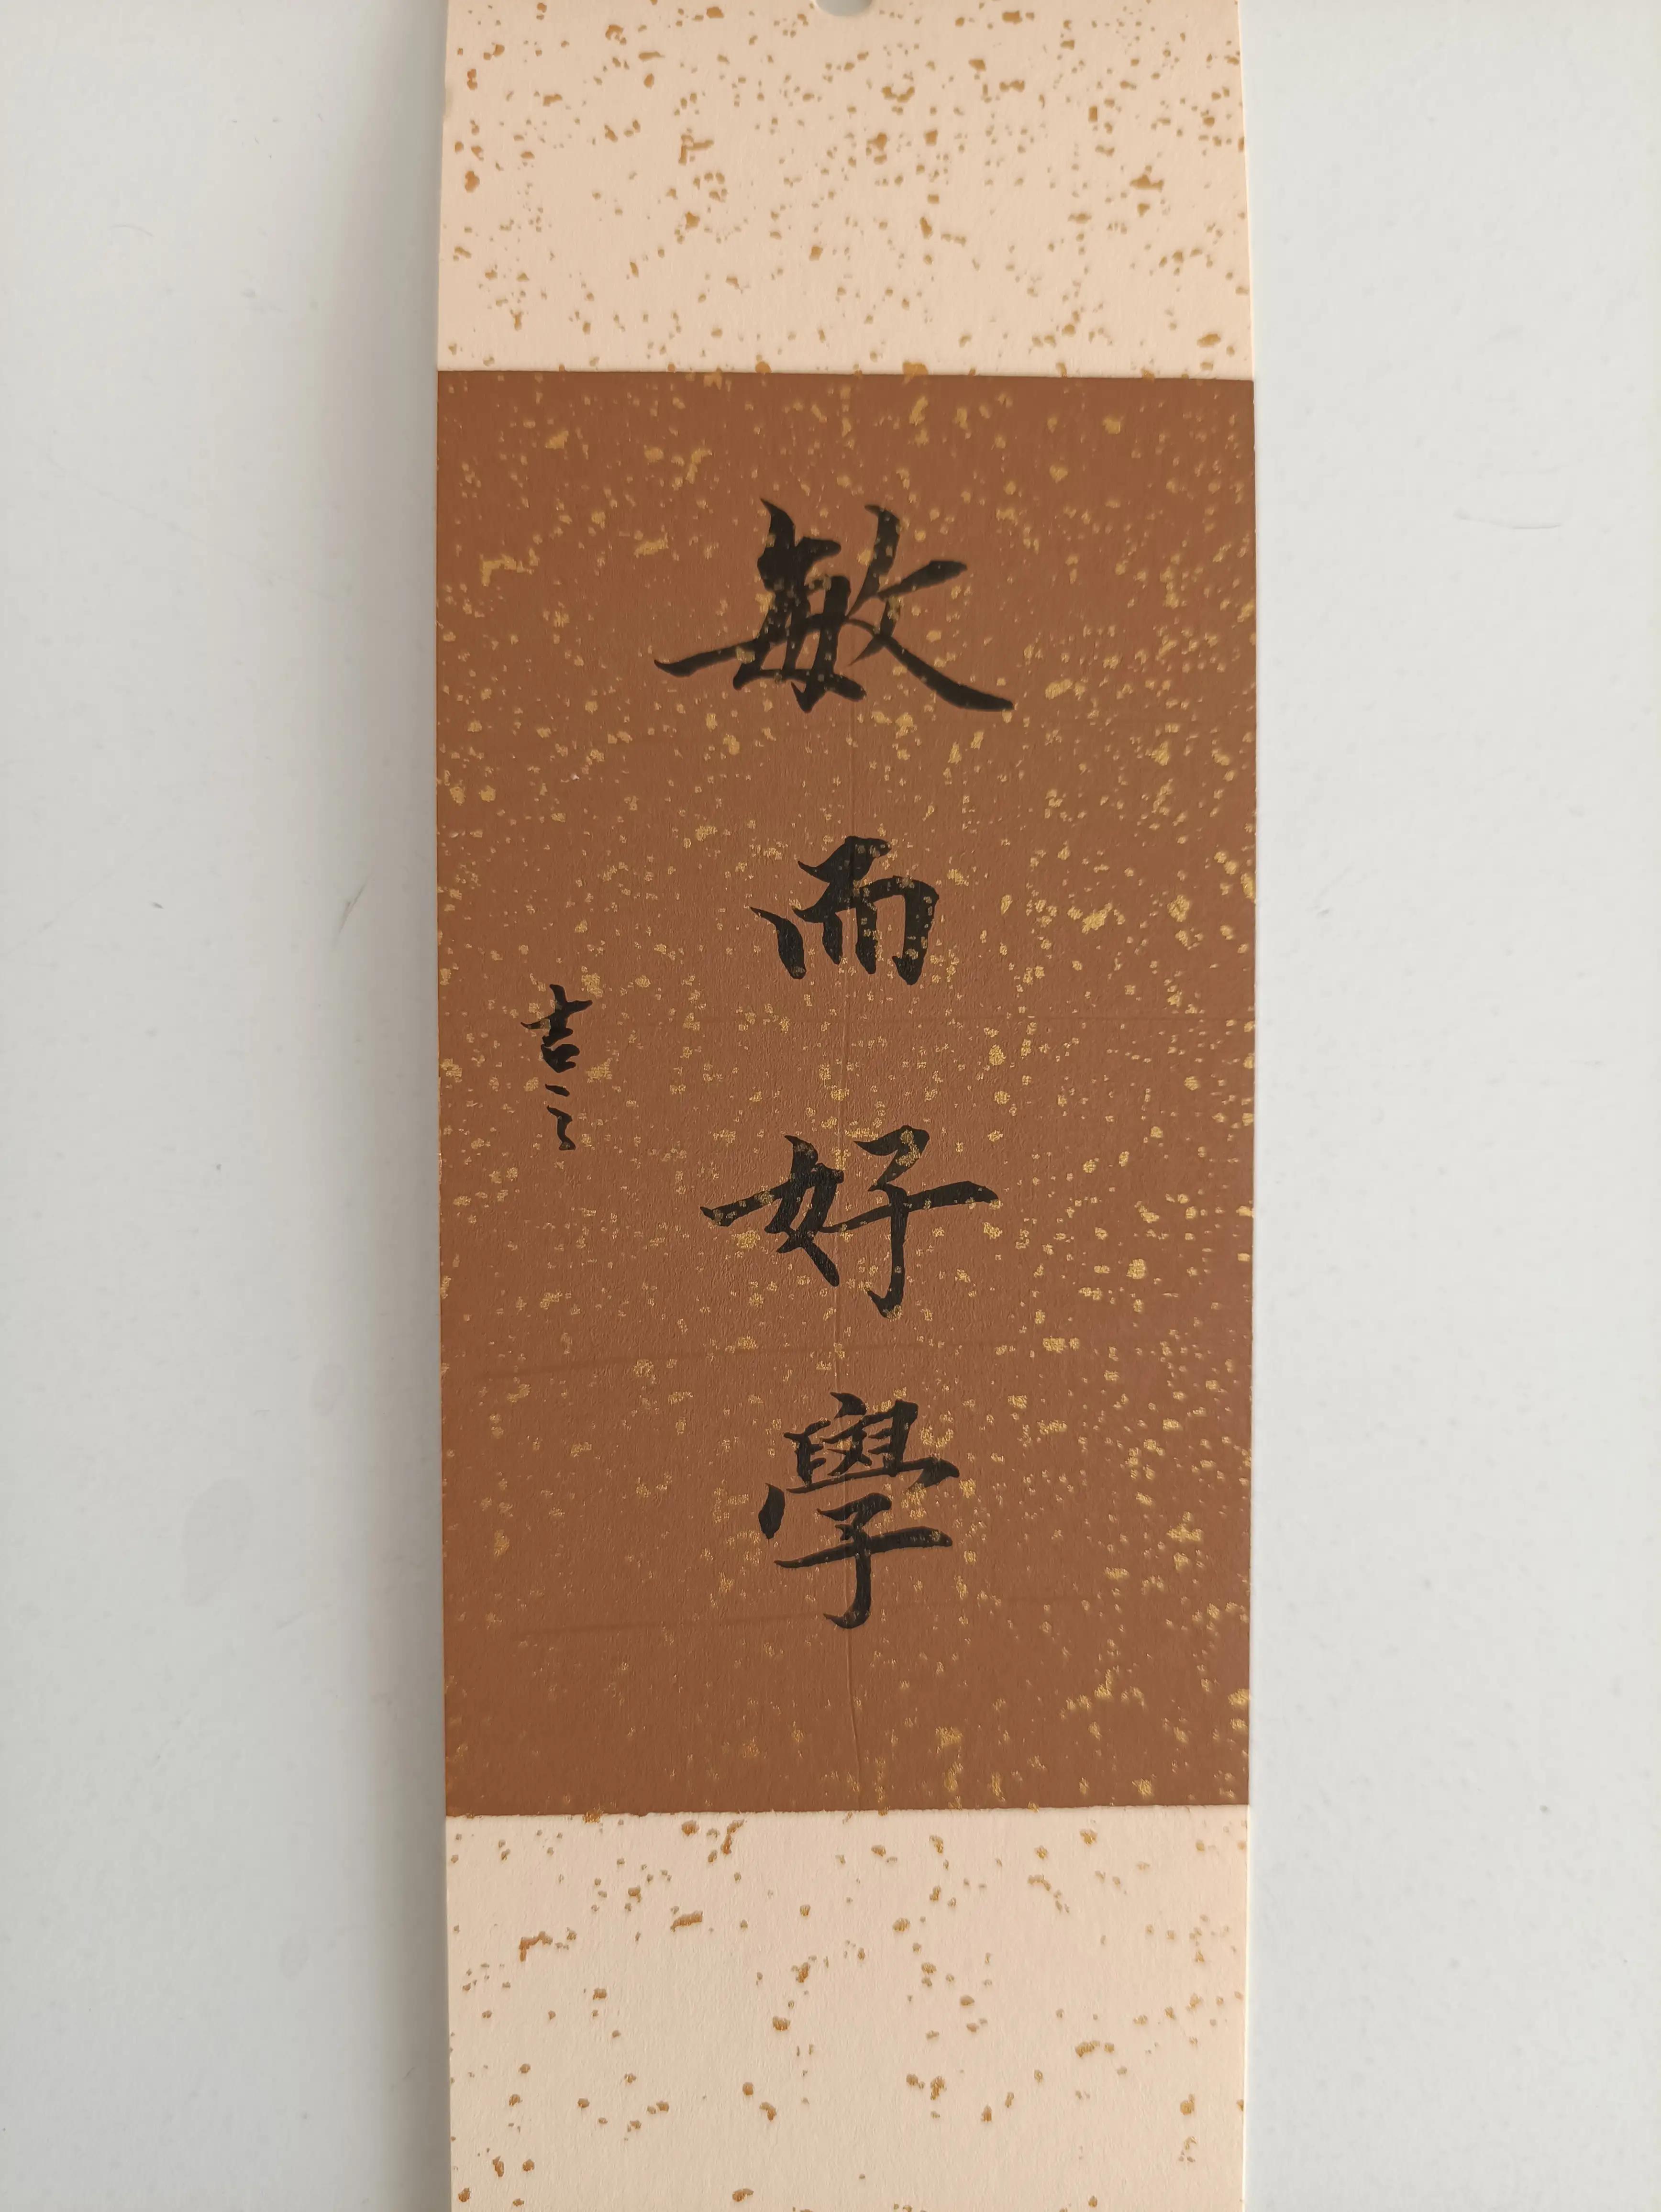 敏而好學
吉之